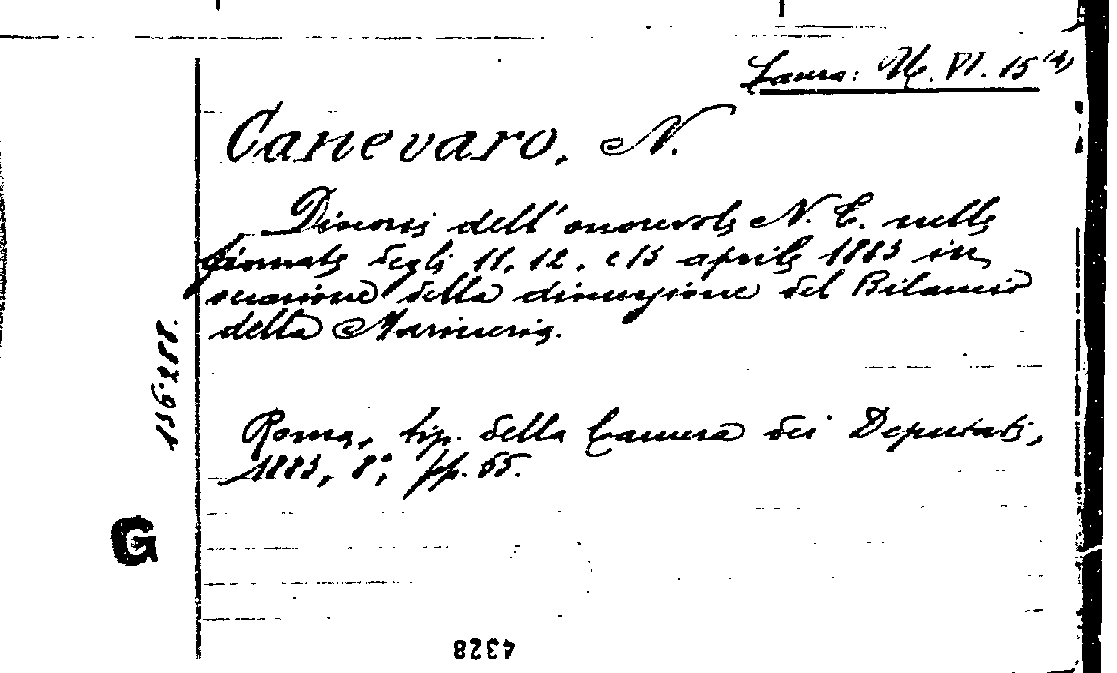 Canevaro, N.
Discorsi dell'onorevole N. C. nelle
giornate degli 11, 12, e 13 aprile 1883 in
occasione della discussione del Bilancio
della Marineria.
Roma, tip. della Camera dei Deputati,
1883, 8°, pp. 55.
136288.
G
4328